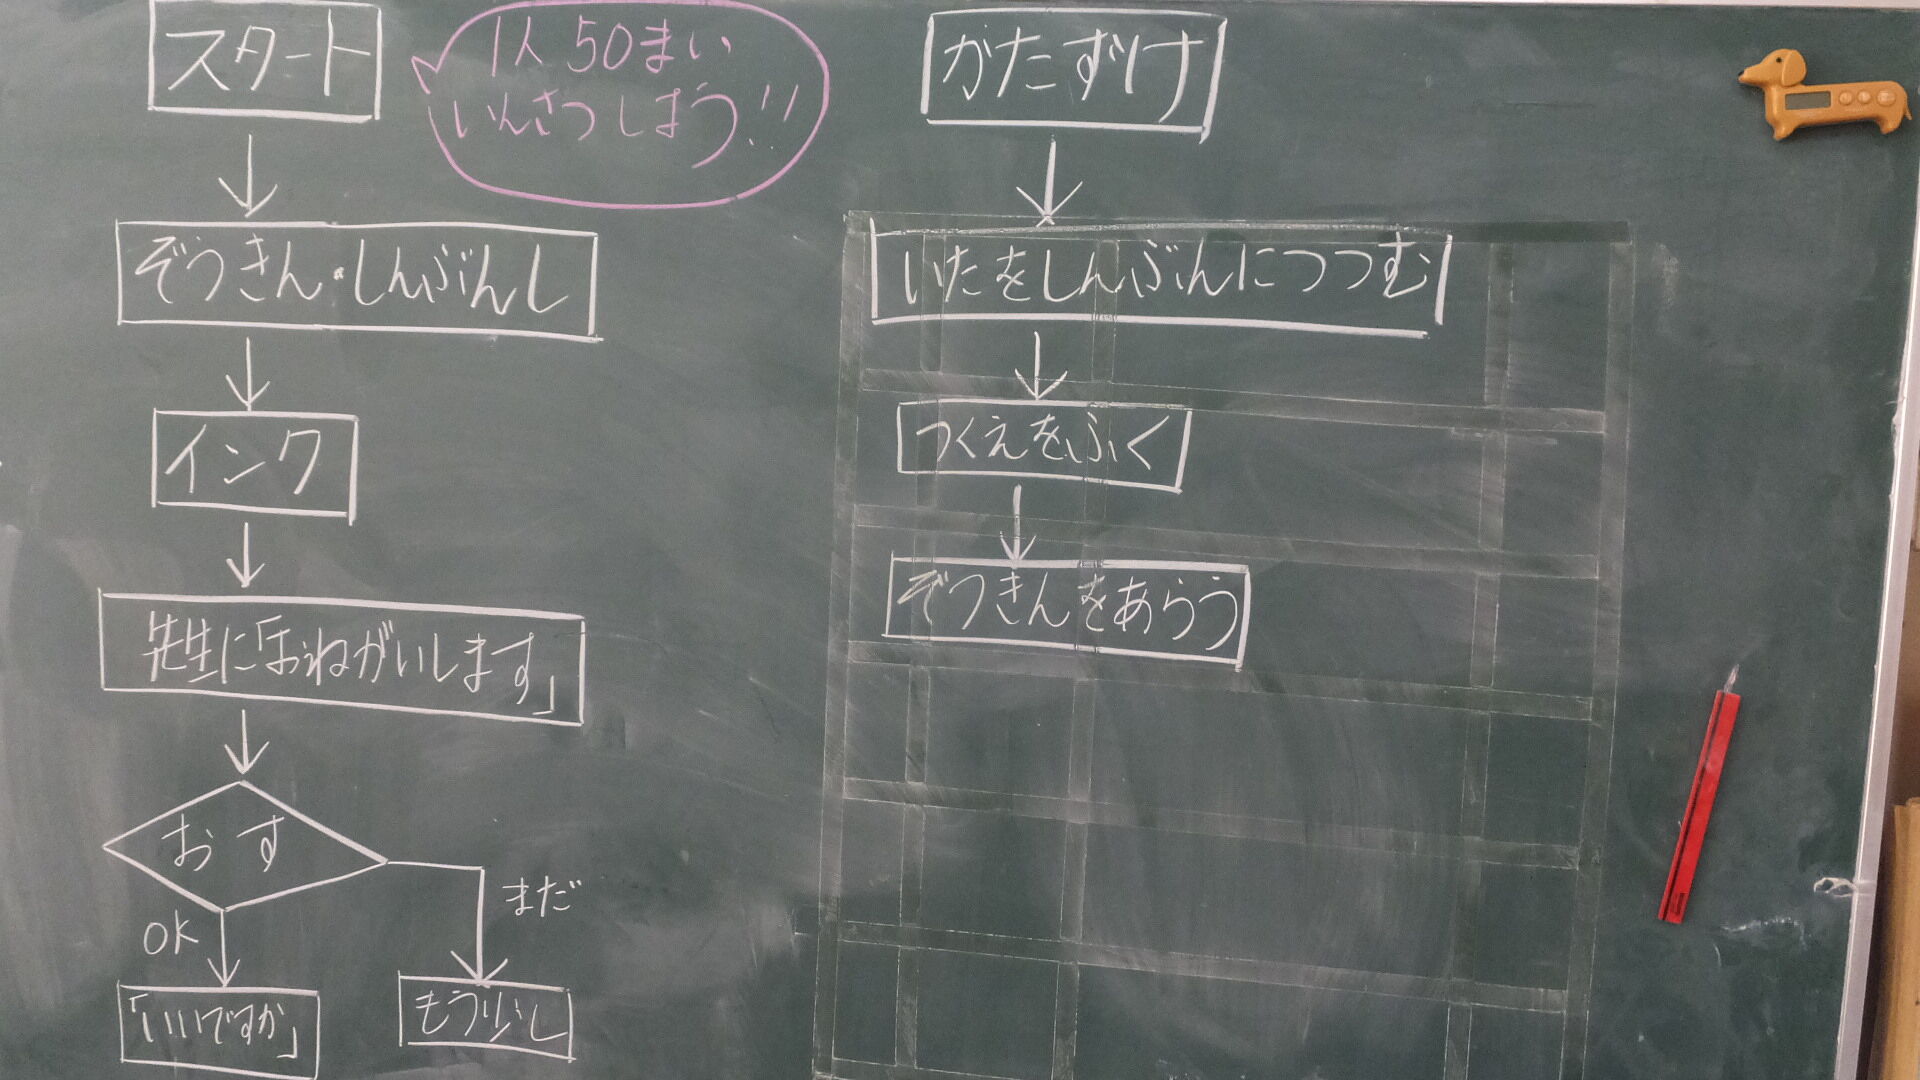 スタート
1人50まい
いんさつしまう!!
ぞうきん・しんぶんし
インク
先生に「おねがいします」
おす
OK
まだ
「いいですか」
もう少し
かたずけ
いたをしんぶんにつつむ
つくえをふく
ぞうきんをあらう